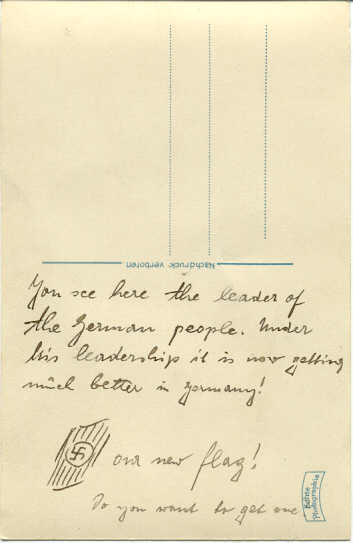 Nachdruck verboten
You see here the leader of
the German people. Under
his leadership it is now getting
much better in Germany!
our new flag!
Do you want to get one
Bettie
Photographie